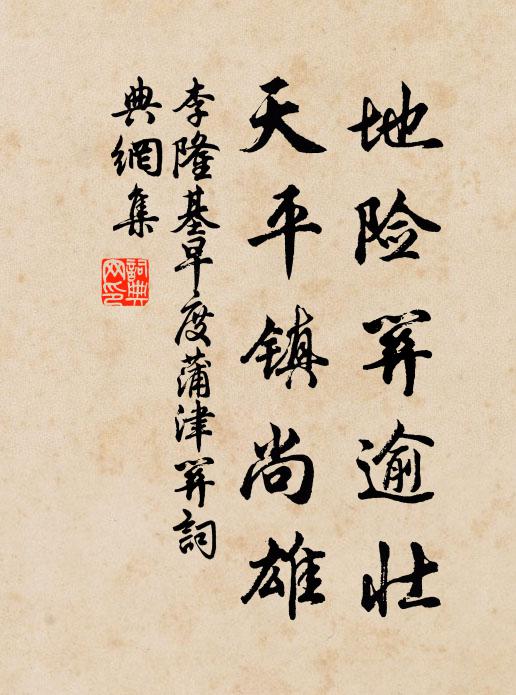 地险关逾壮
天平鎮尚雄
李隆基早度蒲津关詞
典網集
詞典
网印